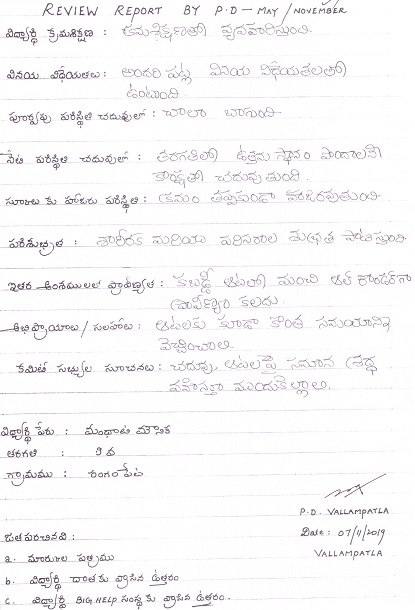 REVIEW REPORT BY P.D - MAY / NOVEMBER
విద్యార్థి క్రమశిక్షణ : క్రమశిక్షణతో వ్యవహరిస్తుంది.
వినయ విధేయతలు : అందరి పట్ల వినయ విధేయతలతో
ఉంటుంది.
పూర్వపు పరిస్థితి చదువులో : చాలా బాగుంది
నేటి పరిస్థితి చదువులో : తరగతిలో ఉత్తమ స్థానం పొందాలనే
కాంక్షతో చదువుతుంది.
స్కూలుకు హాజరు పరిస్థితి : క్రమం తప్పకుండా హాజరవుతుంది.
పరిశుభ్రత : శారీరక మరియు పరిసరాల శుభ్రత పాటిస్తుంది
ఇతర అంశములలో ప్రావీణ్యత : కబడ్డీ ఆటలో మంచి ఆల్ రౌండర్ గా
ప్రావీణ్యం కలదు.
అభిప్రాయాలు / సలహాలు : ఆటలకు కూడా కొంత సమయాన్ని
వెచ్చించాలి
కమిటీ సభ్యుల సూచనలు : చదువు, ఆటలపై సమాన శ్రద్ధ
వహిస్తూ ముందుకెళ్లాలి.
విద్యార్థి పేరు : మౌనిక
తరగతి : 9 వ
గ్రామము : రంగంపేట
P.D. VALLAMPATLA
Date : 07/11/2019
VALLAMPATLA
జతపరచినవి :
a. మార్కుల పత్రము
b. విద్యార్థి దాతకు వ్రాసిన ఉత్తరం
c. విద్యార్థి BIG HELP సంస్థకు వ్రాసిన ఉత్తరం.